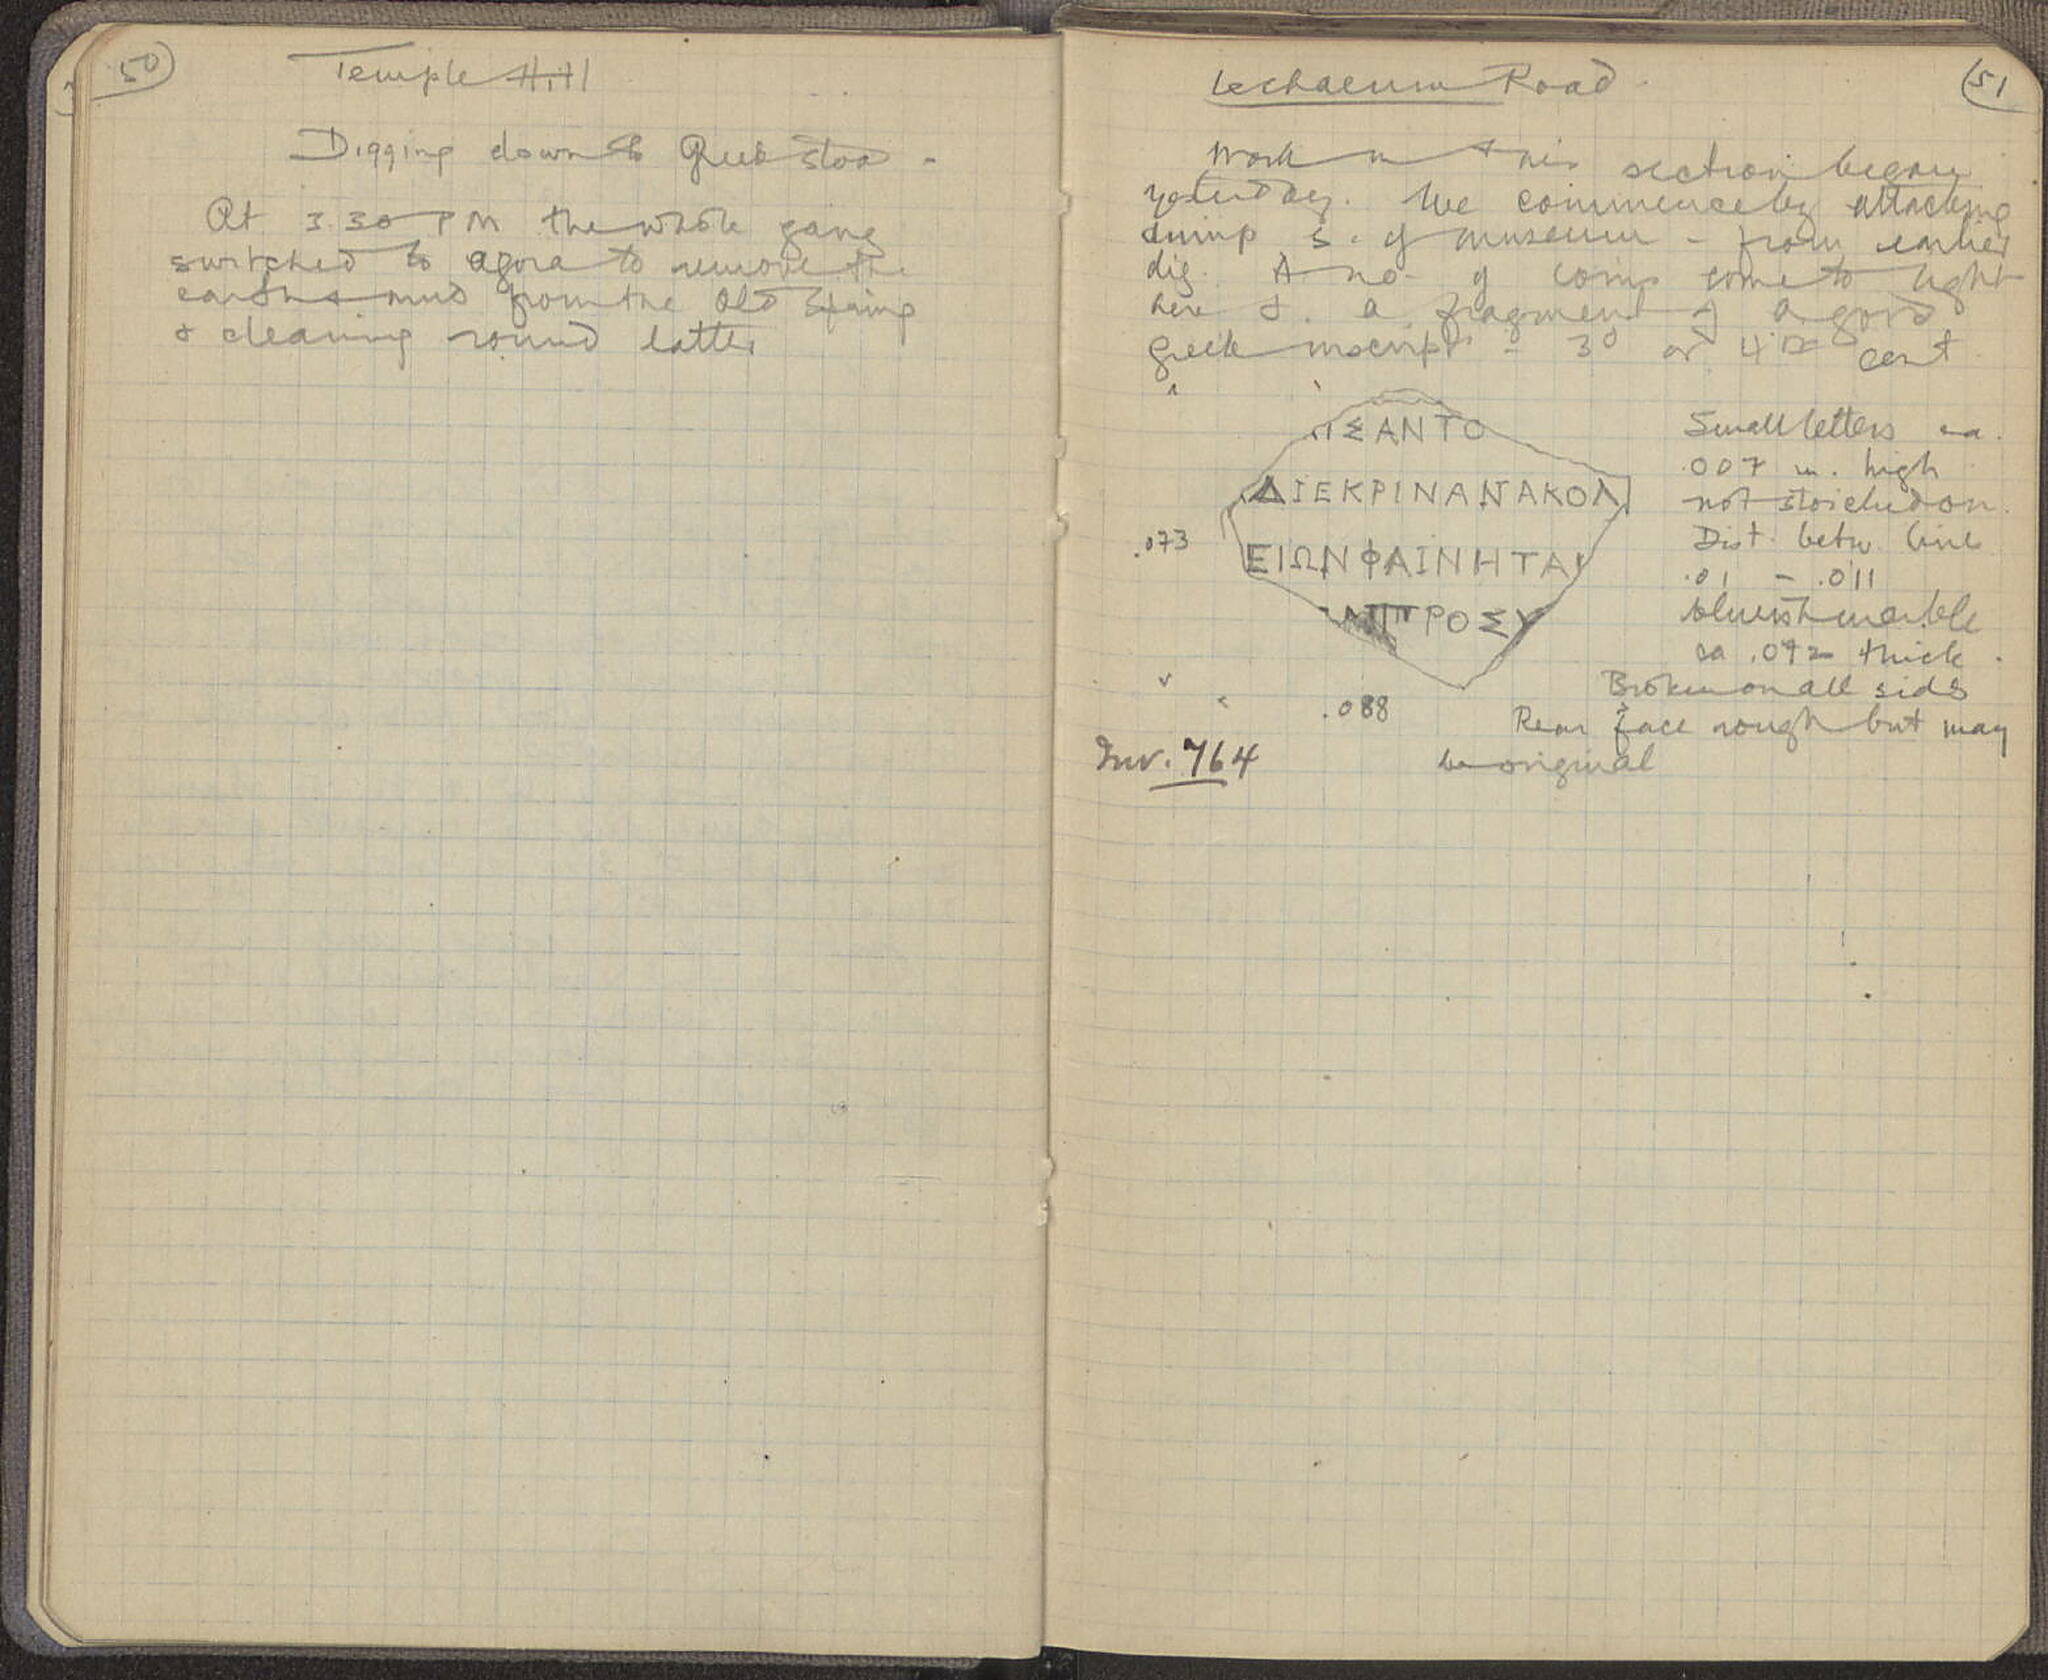 50
Temple Hill
Digging down to Greek stoa -
At 3.30 PM the whole gang
switched to agora to remove the
earth & mud from the Old Spring
& cleaning round latter
51
Lechaeum Road
Work in this section began
yesterday. We commence by attacking
dump S. of museum - from earlier
dig. A no. of coins come to light
here & a fragment of a good
Greek inscript - 3d or 4th cent
ΙΣΑΝΤΟ
ΔΙΕΚΡΙΝΑΝΑΚΟΛ
ΕΙΩΝΦΑΙΝΗΤΑΙ
ΠΡΟΣΥ
.073
.088
Small letters ca.
.007 m. high
not stoichedon.
Dist. betw. lines
.01 - .011
bluish marble
ca .072 thick.
Broken on all sides
Rear face rough but may
be original
Inv. 764